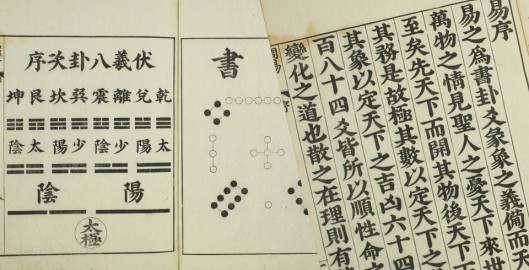 易序
易之爲書卦爻彖象之義備而天
萬物之情見聖人之憂天下來世
至矣先天下而開其物後天下
其務是故極其數以定天下之
其象以定天下之吉凶六十四
百八十四爻皆所以順性命
變化之道也散之在理則有
書
伏羲八卦次序
乾兌離震巽坎艮坤
太陽少陰少陽太陰
陽陰
太極